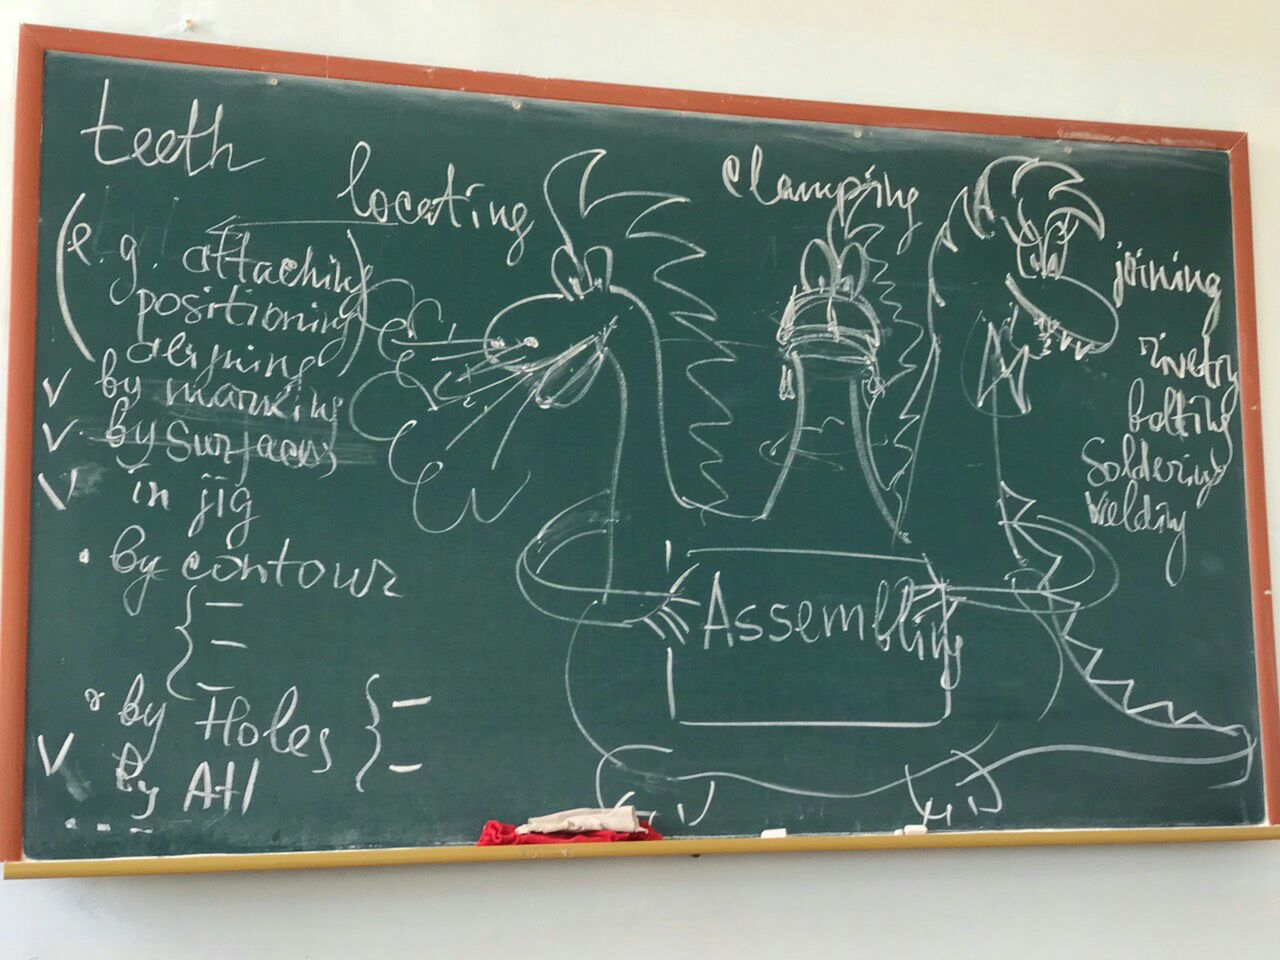 teeth
locating
clamping
(e.g. attaching
positioning
aligning)
joining
riveting
bolting
soldering
welding
v by marking
v by surfaces
v in jig
• by contour
{ –
–
–
• by Holes { –
–
v by AH
...
Assembling